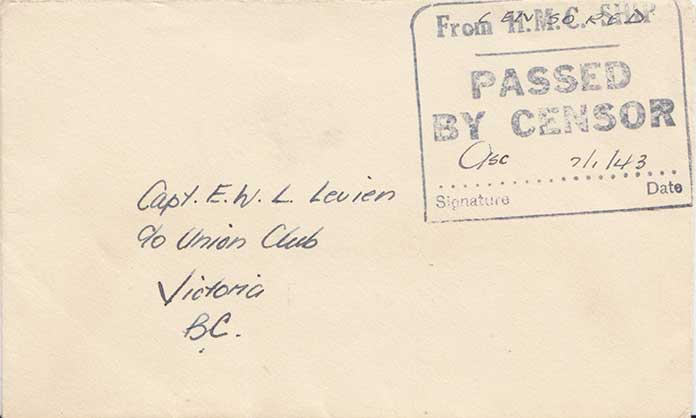 From H.M.C. SHIP
CENSORED
PASSED
BY CENSOR
7/1/43
Signature Date
Capt. E. W. L. Levien
c/o Union Club
Victoria
B.C.